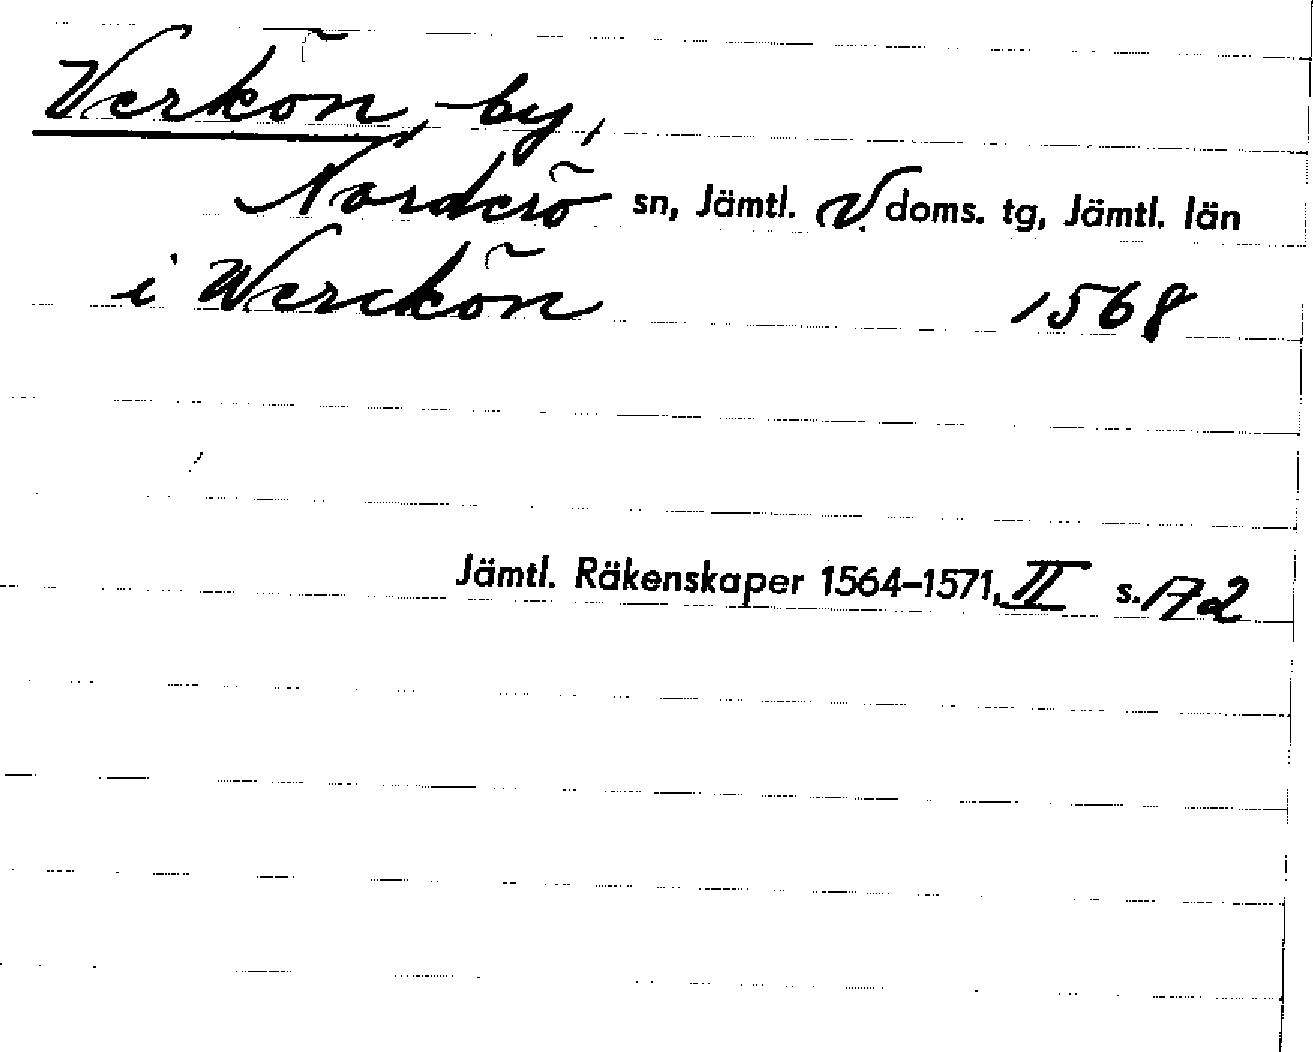 Verkön, by,
Norderö sn, Jämtl. V. doms. tg, Jämtl. län
i Werckön 1568
Jämtl. Räkenskaper 1564-1571, II s. 172